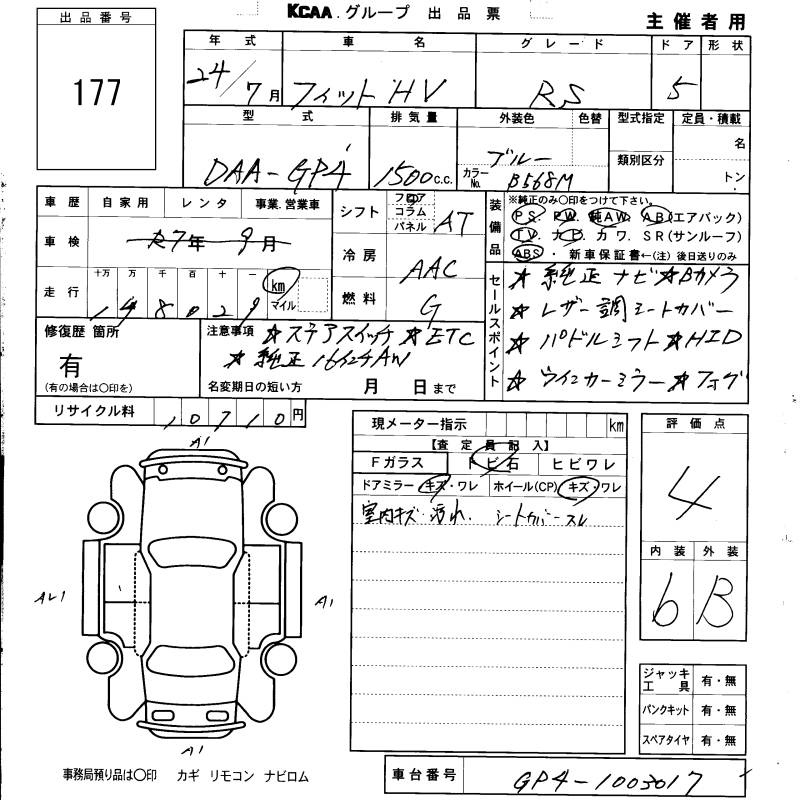 KCAA グループ 出品票
主催者用
出品番号
177
年式 車名 グレード ドア 形状
24/7月 フィットHV RS 5
型式 排気量 外装色 色替 型式指定 定員・積載
類別区分
名
トン
DAA-GP4 1500c.c. ブルー
カラーNo. B568M
車歴 自家用 レンタ 事業.営業車
車検 R7年 9月
走行 十万 万 千 百 十 一 km マイル
148029
シフト フロア コラム パネル AT
冷房 AAC
燃料 G
装備品
※純正のみ〇印をつけて下さい。
PS. PW. 純AW. AB(エアバック)
TV. ナビ. カワ. SR(サンルーフ)
ABS. 新車保証書←(注) 後日送りのみ
セールスポイント
★純正ナビ★Bカメラ
★レザー調シートカバー
★パドルシフト★HID
★ウインカーミラー★フォグ
修復歴 箇所
有
(有の場合は〇印を)
注意事項 ★ステアスイッチ★ETC
★純正16インチAW
名変期日の短い方 月 日まで
リサイクル料 10710円
現メーター指示 km
【査定員記入】
Fガラス トビ石 ヒビワレ
ドアミラー キズ・ワレ ホイール(CP) キズ・ワレ
室内キズ 汚れ. シートカバースレ
評価点
4
内装 外装
6 B
A1
AU1
A1
A1
ジャッキ工具 有・無
パンクキット 有・無
スペアタイヤ 有・無
事務局預り品は〇印 カギ リモコン ナビロム
車台番号 GP4-1003017